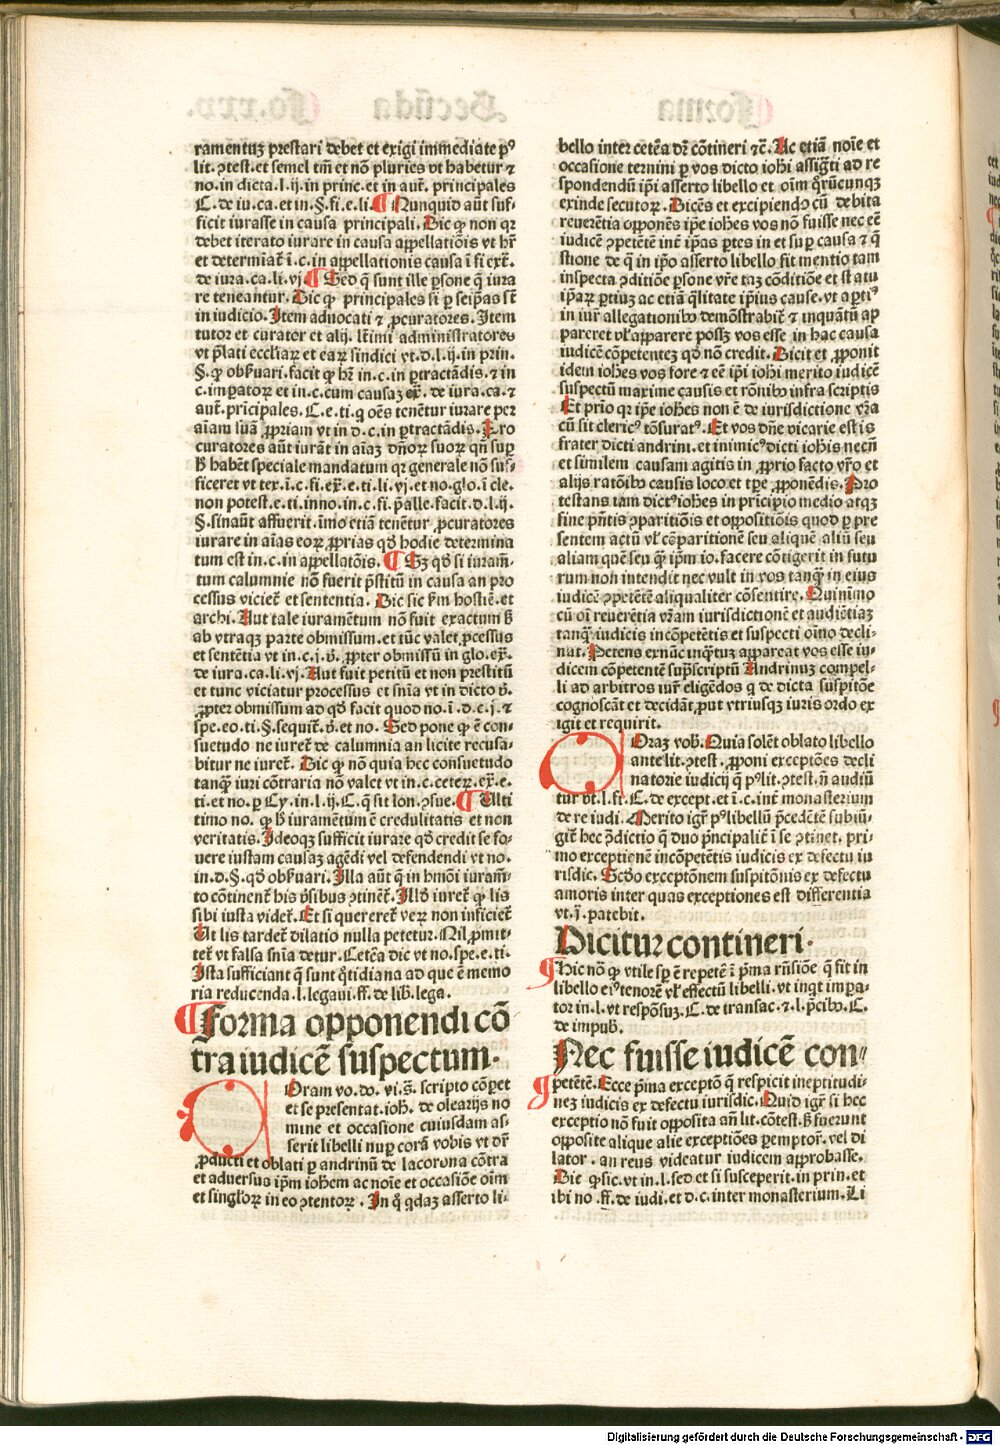 ramentuʒ prestari debet et exigi immediate pꝰ
lit. ꝯtest. et semel tm̄ et nō pluries vt habetur ⁊
no. in dicta. l. ij. in princ. et in aut̄. principales
C. de iu. ca. et in. §. fi. e. li. ¶ Nunquid aūt suf-
ficit iurasse in causa principali. Dic ꝙ non qꝛ
debet iterato iurare in causa appellatiōis vt hr̄
et determiat̄ ī. c. in appellationis causa ī fi ext̄.
de iura. ca. li. vj ¶ Sed q̄ sunt ille ꝑsone q̄ iura
re teneantur. Dic ꝙ principales si ꝑ seip̄as st̄
in iudicio. Item aduocati ⁊ ꝓcuratores. Item
tutor et curator et alij. ltīmi administratores
vt p̄lati eccliaꝝ et eaꝝ sindici vt. d. l. ij. in prin.
§. ꝙ obseruari. facit ꝙ hr̄ in. c. in ꝑtractādis. ⁊ in
c. imꝑatoꝝ et in. c. cum causaʒ ex̄. de iura. ca. ⁊
aut̄. pricipales. C. e. ti. q oēs tenētur iurare per
aīam suā ꝓpriam vt in d. c. in ꝑtractādis. Pro
curatores aūt iurāt in aīaʒ dn̄oꝝ suoꝝ qn̄ suꝑ
ꝭ habēt speciale mandatum qꝛ generale nō suf-
ficeret vt tex. ī. c. fi. ex̄. e. ti. li. vj. et no. glo. ī cle.
non potest. e. ti. inno. in. c. fi. p̄alle. facit. d. l. ij.
§. sinaūt affuerit. īmo etiā tenētur ꝓcuratores
iurare in aīas eoꝝ ꝓprias qđ hodie determina
tum est in. c. in appellatōis. ¶ Sʒ qđ si iuram̄-
tum calumnie nō fuerit p̄stitū in causa an pro
cessus viciet̄ et sententia. Dic sic ẜm hostiē. et
archi. Aut tale iuramētum nō fuit exactum ꝭ
ab vtraqʒ parte obmissum. et tūc valet ꝓcessus
et sentētia vt in. c. j. ꝟ. ꝓpter obmissū in glo. ex̄.
de iura. ca. li. vj. Aut fuit petitū et non prestitū
et tunc viciatur processus et snīa vt in dicto ꝟ.
ꝓpter obmissum ad qđ facit quod no. ī. d. e. j. ⁊
spe. eo. ti. §. sequit̄. ꝟ. et no. Sed pone ꝙ ē con-
suetudo ne iuret̄ de calumnia an licite recusa-
bitur ne iuret̄. Dic ꝙ nō quia hec consuetudo
tanqʒ iuri cōtraria nō valet vt in. c. ceteꝝ. ex̄. e.
ti. et no. ꝑ Cy. in. l. ij. C. q̄ sit lon. ꝯsue. ¶ Ulti
timo no. ꝙ ꝭ iuramētum ē credulitatis et non
veritatis. Ideoqʒ sufficit iurare qđ credit se fo-
uere iustam causaʒ agēdi vel defendendi vt no.
in. d. §. qđ obseruari. Illa aūt q̄ in hmōi iuram̄-
to cōtinent̄ his ꝟsibus ꝯtinet̄. Illđ iuret̄ ꝙ lis
sibi iusta videt̄. Et si quereret̄ veꝝ non inficiet̄
Ut lis tardet̄ dilatio nulla petetur. Nil ꝓmit-
tet̄ vt falsa snīa detur. Cetēa dic vt no. spe. e. ti.
Ista sufficiant q̄ sunt q̄tidiana ad que ē memo
ria reducenda. l. legaui. ff. de lib. lega.
¶ Forma opponendi cō
tra iudicē suspectum.
Coram vo. do. vi. s̄. scripto cōpet
et se presentat. ioh̄. de olearijs no
mine et occasione cuiusdam as-
serit libelli nuꝑ corā vobis vt dr̄
ꝓducti et oblati ꝑ andrinū de lacorona cōtra
et aduersus ip̄m ioh̄em ac noīe et occasiōe oīm
et singloꝝ in eo ꝯtentoꝝ. In q̄ qdaʒ asserto li-
bello inter cetēa dr̄ cōtineri ⁊c̄. Ac etiā noīe et
occasione termini ꝑ vos dicto ioh̄i assigti ad re
spondendū ip̄i asserto libello et oīm q̄rūcunqʒ
exinde secutoꝝ. Dicēs et excipiendo cū debita
reuerētia opponēs ip̄e ioh̄es vos nō fuisse nec eē
iudicē ꝯpetētē int̄ ip̄as ꝑtes in et suꝑ causa ⁊ q̄
stione de q̄ in ip̄o asserto libello fit mentio tam
inspecta ꝯditiōe ꝑsone vr̄e taʒ cōditiōe et statu
ip̄aꝝ ꝑtiuʒ ac etiā q̄litate ip̄ius cause. vt aꝑtiꝰ
in iur̄ allegationibꝰ demōstrabit̄ ⁊ inquātū ap
pareret vl̄ apparere possʒ vos esse in hac causa
iudicē cōpetenteʒ qđ nō credit. Dicit et ꝓponit
idem ioh̄es vos fore ⁊ eē ip̄i ioh̄i merito iudicē
suspectū maxime causis et rōnibꝰ infra scriptis
Et prio qꝛ ip̄e ioh̄es non ē de iurisdictione vr̄a
cū sit clericꝰ tōsuratꝰ. Et vos dn̄e vicarie estis
frater dicti andrini. et inimicꝰ dicti ioh̄is necn̄
et similem causam agitis in ꝓprio facto vr̄o et
alijs ratōibꝰ causis loco et tp̄e ꝓponēdis. Pro
testans tam dictꝰ ioh̄es in prīcipio medio atqʒ
fine p̄ntis ꝯparitiōis et oppositiōis quod ꝑ pre
sentem actū vl̄ cōparitionē seu aliquē aliū seu
aliam quē seu q̄ ip̄m io. facere cōtigerit in futu
rum non intendit nec vult in vos tanq̄ in eius
iudicē ꝯpetētē aliqualiter cōsentire. Quinimo
cū oī reuerētia vr̄am iurisdictionē et audiētiaʒ
tanq̄ iudicis incōpetētis et suspecti oīno decli-
nat. Petens exnūc inq̄tuʒ appareat vos esse iu-
dicem cōpetentē sup̄scriptū Andrinuʒ compel-
li ad arbitros iur̄ eligēdos q de dicta suspitōe
cognoscāt et decidāt ꝓut vtriusqʒ iuris ordo ex
igit et requirit.
Coraʒ vob̄. Quia solēt oblato libello
ante lit. ꝯtest. ꝓponi exceptōes decli
natorie iudicij q̄ pꝰlit. ꝯtest. n̄ audiū
tur vt. l. fi. C. de except. et ī. c. int̄ monasterium
de re iudi. Merito igr̄ pꝰlibellū p̄cedētē subiū-
git̄ hec ꝯdictio q̄ duo pn̄cipalit̄ ī se ꝯtinet. pri-
mo exceptionē incōpetētis iudicis ex defectu iu
risdic. Scđo exceptōnem suspitōnis ex defectu
amoris inter quas exceptiones est differentia
vt. ī. patebit.
Dicitur contineri.
¶ Hic nō ꝙ vtile sꝑ ē repetē ī p̄ma rn̄siōe q̄ fit in
libello eiꝰ tenorē vl̄ effectū libelli. vt inqt imꝑa-
tor in. l. vt respōsuʒ. C. de transac. ⁊. l. p̄cibꝰ. C.
de impub.
Nec fuisse iudicē con-
¶ petētē. Ecce p̄ma exceptō q̄ respicit ineptitudi-
neʒ iudicis ex defectu iurisdic. Quid igr̄ si hec
exceptio nō fuit opposita an̄ lit. cōtest. ꝭ fuerunt
opposite alique alie exceptiōes ꝑemptor̄. vel di
lator. an reus videatur iudicem approbasse.
Dic ꝙ sic. vt in. l. sed et si susceperit. in prin. et
ibi no. ff. de iudi. et d. c. inter monasterium. Li
Digitalisierung gefördert durch die Deutsche Forschungsgemeinschaft - DFG